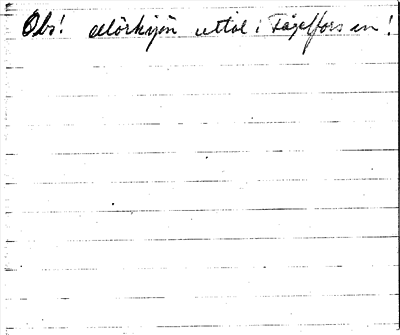 Obs! Mörksjön uttal i Fågelfors sn!